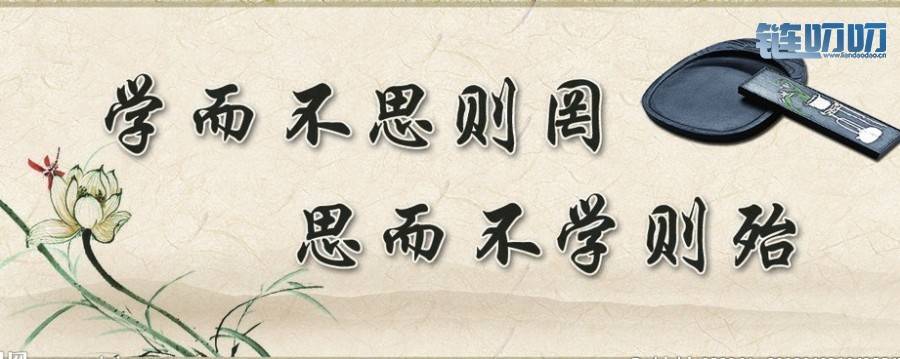 链叨叨
www.liandaodao.cn
学而不思则罔
思而不学则殆